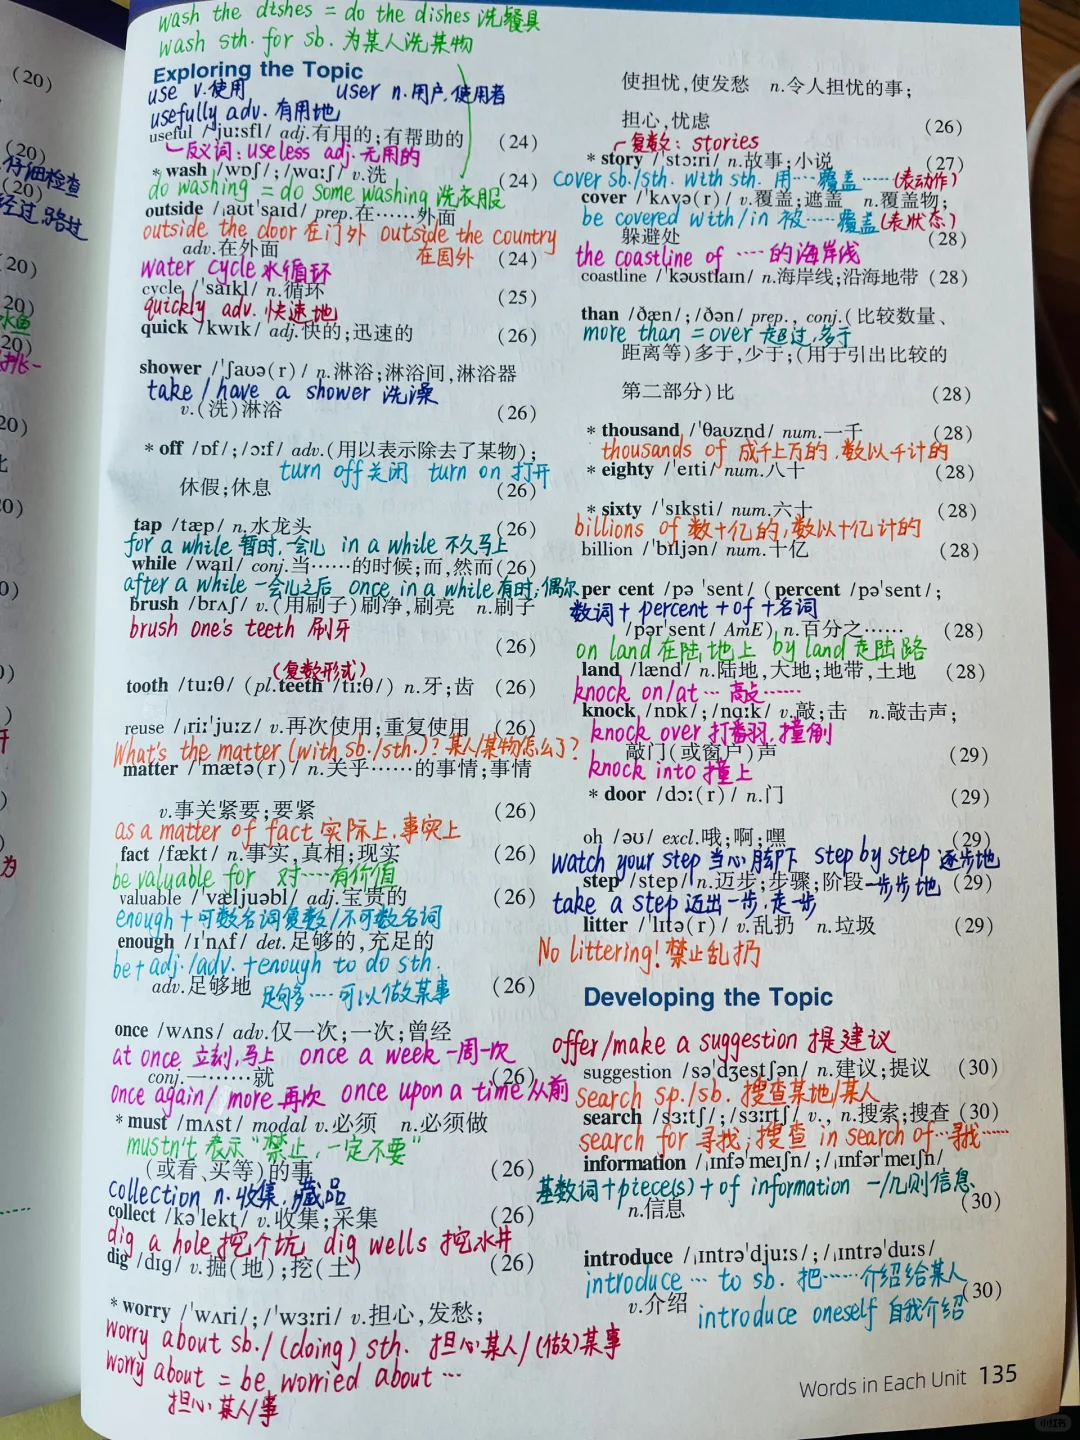 wash the dishes = do the dishes 洗餐具
wash sth. for sb. 为某人洗某物
Exploring the Topic
use v.使用 user n.用户,使用者
usefully adv. 有用地
useful /ˈjuːsfl/ adj.有用的;有帮助的 (24)
反义词: useless adj. 无用的
* wash /wɒʃ/;/wɑːʃ/ v.洗 (24)
do washing = do some washing 洗衣服
outside /ˌaʊtˈsaɪd/ prep.在……外面
outside the door 在门外 outside the country 在国外
adv.在外面 (24)
water cycle 水循环
cycle /ˈsaɪkl/ n.循环 (25)
quickly adv. 快速地
quick /kwɪk/ adj.快的;迅速的 (26)
shower /ˈʃaʊə(r)/ n.淋浴;淋浴间,淋浴器
take / have a shower 洗澡
v.(洗)淋浴 (26)
* off /ɒf/;/ɔːf/ adv.(用以表示除去了某物);
turn off 关闭 turn on 打开
休假;休息 (26)
tap /tæp/ n.水龙头 (26)
for a while 暂时,一会儿 in a while 不久马上
while /waɪl/ conj.当……的时候;而,然而(26)
after a while 一会儿之后 once in a while 有时;偶尔
brush /brʌʃ/ v.(用刷子)刷净,刷亮 n.刷子
brush one's teeth 刷牙
(26)
(复数形式)
tooth /tuːθ/ (pl.teeth /tiːθ/) n.牙;齿 (26)
reuse /ˌriːˈjuːz/ v.再次使用;重复使用 (26)
What's the matter (with sb./sth.)? 某人/某物怎么了?
matter /ˈmætə(r)/ n.关乎……的事情;事情
v.事关紧要;要紧 (26)
as a matter of fact 实际上,事实上
fact /fækt/ n.事实,真相;现实 (26)
be valuable for 对……有价值
valuable /ˈvæljuəbl/ adj.宝贵的 (26)
enough + 可数名词复数/不可数名词
enough /ɪˈnʌf/ det.足够的,充足的
be + adj./adv. + enough to do sth.
adv.足够地 (26)
足够…… 可以做某事
once /wʌns/ adv.仅一次;一次;曾经
at once 立刻,马上 once a week 一周一次
conj.一……就 (26)
once again / more 再次 once upon a time 从前
* must /mʌst/ modal v.必须 n.必须做
mustn't 表示“禁止,一定不要”
(或看、买等)的事 (26)
collection n.收集,藏品
collect /kəˈlekt/ v.收集;采集 (26)
dig a hole 挖个坑 dig wells 挖水井
dig /dɪɡ/ v.掘(地);挖(土) (26)
* worry /ˈwʌri/;/ˈwɜːri/ v.担心,发愁;
worry about sb./(doing) sth. 担心某人/(做)某事
worry about = be worried about …
担心某人/事
使担忧,使发愁 n.令人担忧的事;
担心,忧虑 (26)
复数: stories
* story /ˈstɔːri/ n.故事;小说 (27)
cover sb./sth. with sth. 用……覆盖……(表动作)
cover /ˈkʌvə(r)/ v.覆盖;遮盖 n.覆盖物;
be covered with/in 被……覆盖(表状态)
躲避处 (28)
the coastline of …… 的海岸线
coastline /ˈkəʊstlaɪn/ n.海岸线;沿海地带 (28)
than /ðæn/;/ðən/ prep., conj.(比较数量、
more than = over 超过,多于
距离等)多于,少于;(用于引出比较的
第二部分)比 (28)
* thousand /ˈθaʊznd/ num.一千 (28)
thousands of 成千上万的,数以千计的
* eighty /ˈeɪti/ num.八十 (28)
* sixty /ˈsɪksti/ num.六十 (28)
billions of 数十亿的,数以十亿计的
billion /ˈbɪljən/ num.十亿 (28)
per cent /pə ˈsent/ (percent /pəˈsent/;
数词 + percent + of + 名词
/pərˈsent/ AmE) n.百分之…… (28)
on land 在陆地上 by land 走陆路
land /lænd/ n.陆地,大地;地带,土地 (28)
knock on/at … 敲……
knock /nɒk/;/nɑːk/ v.敲;击 n.敲击声;
knock over 打翻,撞倒
敲门(或窗户)声 (29)
knock into 撞上
* door /dɔː(r)/ n.门 (29)
oh /əʊ/ excl.哦;啊;嘿 (29)
watch your step 当心脚下 step by step 逐步地
step /step/ n.迈步;步骤;阶段 一步步地 (29)
take a step 迈出一步,走一步
litter /ˈlɪtə(r)/ v.乱扔 n.垃圾 (29)
No littering! 禁止乱扔
Developing the Topic
offer/make a suggestion 提建议
suggestion /səˈdʒestʃən/ n.建议;提议 (30)
search sp./sb. 搜查某地/某人
search /sɜːtʃ/;/sɜːrtʃ/ v., n.搜索;搜查 (30)
search for 寻找;搜查 in search of … 寻找……
information /ˌɪnfəˈmeɪʃn/;/ˌɪnfərˈmeɪʃn/
基数词+piece(s)+of information 一/几则信息
n.信息 (30)
introduce /ˌɪntrəˈdjuːs/;/ˌɪntrəˈduːs/
introduce … to sb. 把……介绍给某人
v.介绍 (30)
introduce oneself 自我介绍
Words in Each Unit 135
(20)
(20)
仔细检查
(20)
经过,路过
(20)
(20)
(20)
小红书